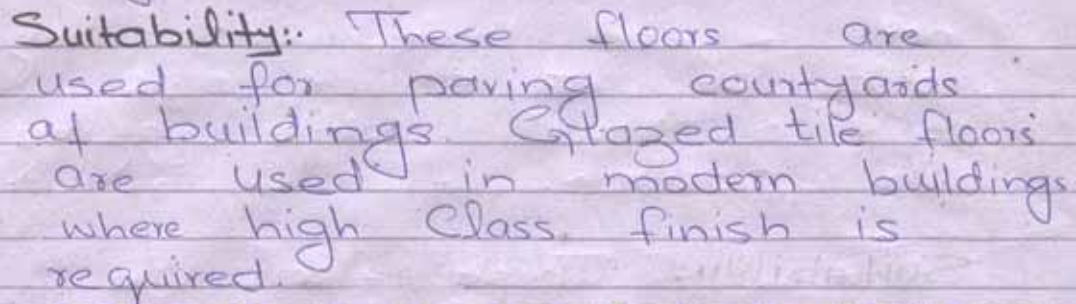 Suitability:- These floors are
used for paving courtyards
of buildings. Glazed tile floors
are used in modern buildings
where high Class finish is
required.